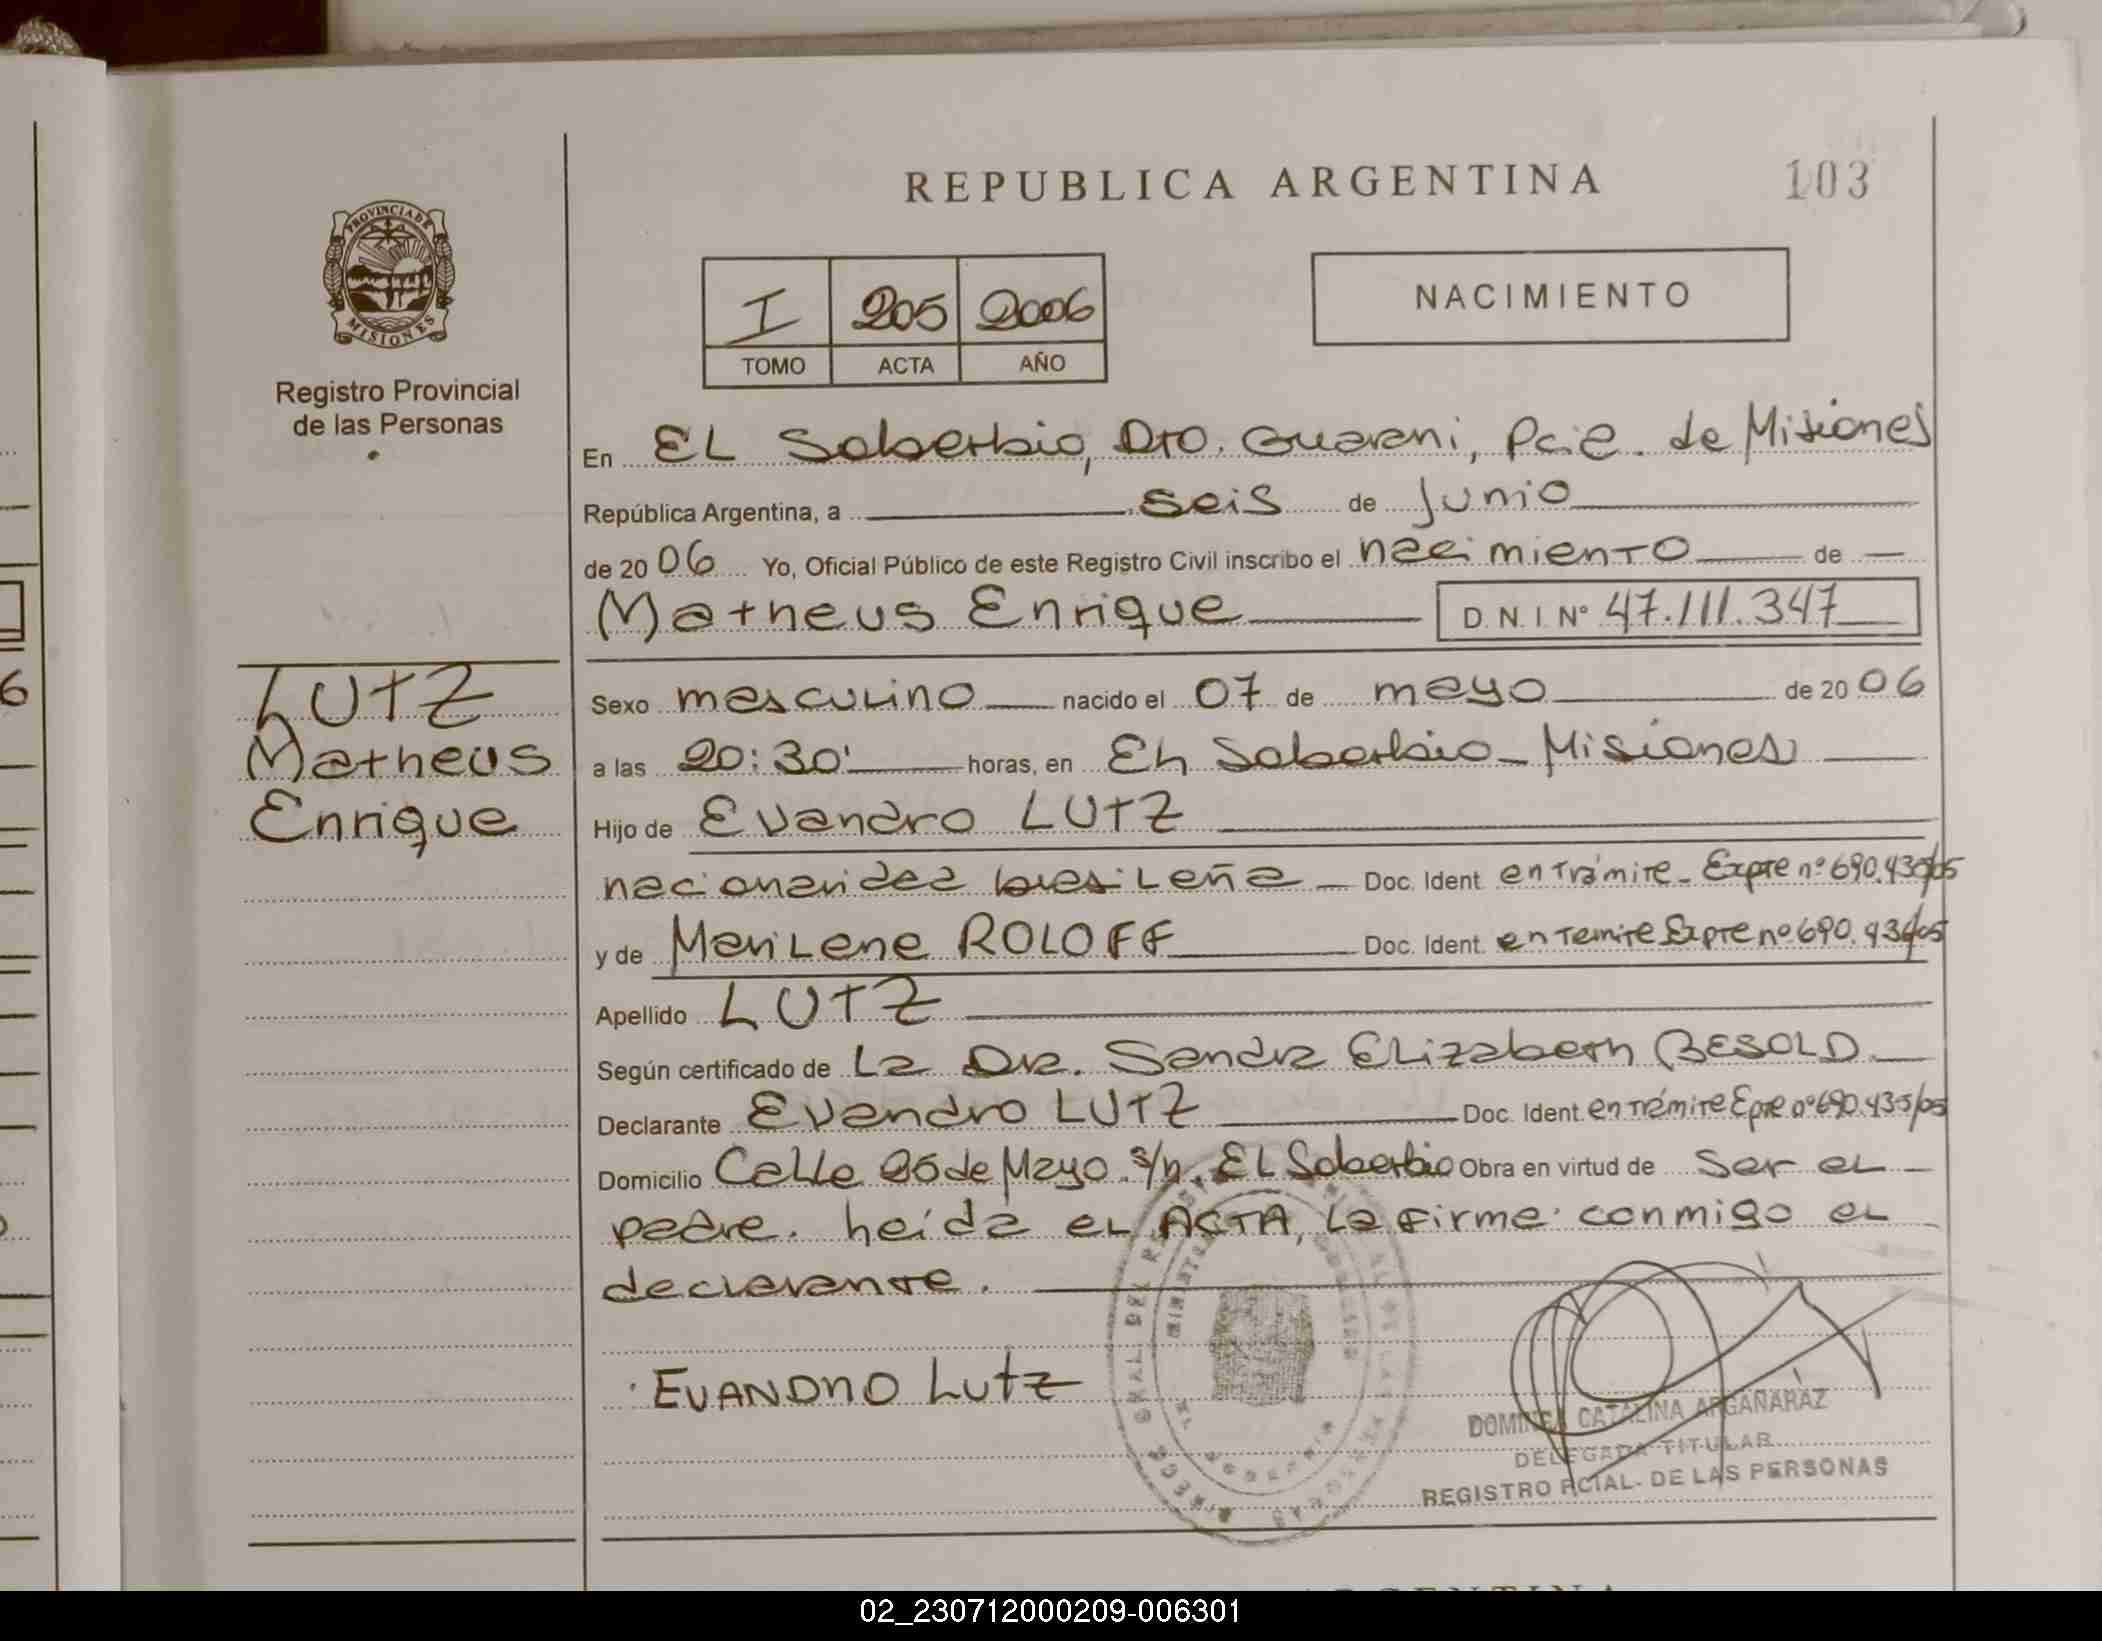 REPUBLICA ARGENTINA
103
PROVINCIA DE
MISIONES
Registro Provincial
de las Personas
I 205 2006
TOMO ACTA AÑO
NACIMIENTO
En EL Soberbio, Dto. Guarani, Pcie. de Misiones
República Argentina, a seis de Junio
de 2006 Yo, Oficial Público de este Registro Civil inscribo el nacimiento de
Matheus Enrique D.N.I. Nº 47.111.347
LUTZ
Matheus
Enrique
Sexo masculino nacido el 07 de mayo de 2006
a las 20:30' horas, en EL Soberbio - Misiones
Hijo de Evandro LUTZ
nacionalidad brasileña Doc. Ident. en Trámite - Expte nº 690.435/05
y de Marilene ROLOFF Doc. Ident. en Tramite Expte nº 690.436/05
Apellido LUTZ
Según certificado de La Dra. Sandra Elizabeth BESOLD
Declarante Evandro LUTZ Doc. Ident. en Trámite Epte nº 690.435/05
Domicilio Calle 25 de Mayo s/n. EL Soberbio Obra en virtud de ser el
padre. Leída el ACTA, la firma conmigo el
declarante.
EVANDRO LUTZ
DOMINGA CATALINA ARGAÑARAZ
DELEGADA TITULAR
REGISTRO PCIAL. DE LAS PERSONAS
02_230712000209-006301